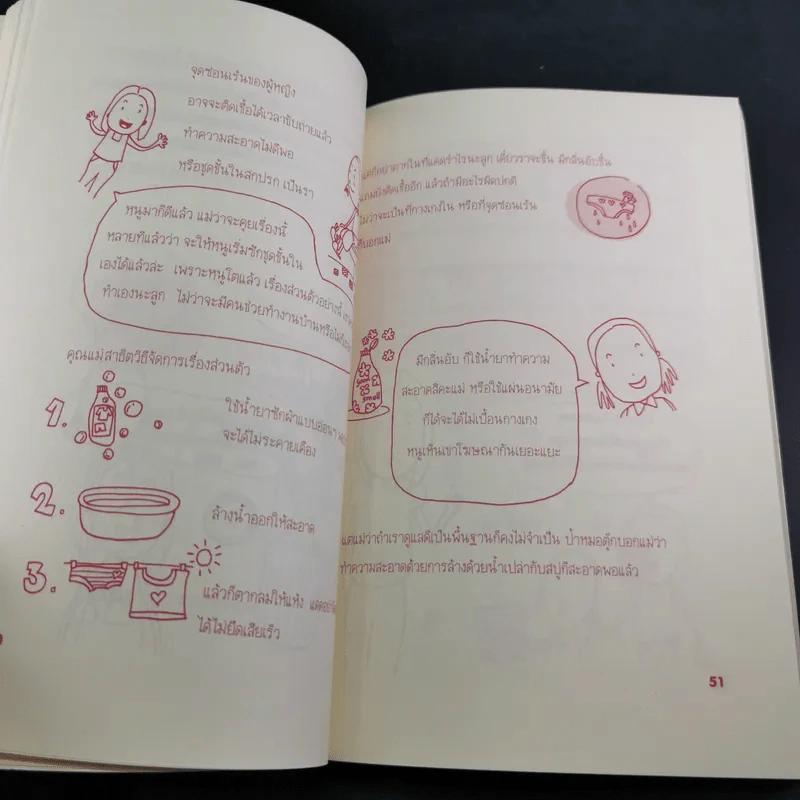 จุดซ่อนเร้นของผู้หญิง
อาจจะติดเชื้อได้เวลาขับถ่ายแล้ว
ทำความสะอาดไม่ดีพอ
หรือชุดชั้นในสกปรก เป็นรา
หนูมาก็ดีแล้ว แม่ว่าจะคุยเรื่องนี้
หลายทีแล้วว่า จะให้หนูเริ่มซักชุดชั้นใน
เองได้แล้วล่ะ เพราะหนูโตแล้ว เรื่องส่วนตัวอย่างนี้
ทำเองนะลูก ไม่ว่าจะมีคนช่วยทำงานบ้านหรือไม่
คุณแม่สาธิตวิธีจัดการเรื่องส่วนตัว
1.
ใช้น้ำยาซักผ้าแบบอ่อน
จะได้ไม่ระคายเคือง
2.
ล้างน้ำออกให้สะอาด
3.
แล้วก็ตากลมให้แห้ง
ได้ไม่ยืดเสียเร็ว
แต่ถ้าตากในที่แดดรำไรนะลูก เดี๋ยวราจะขึ้น มีกลิ่นอับชื้น
แถมยังติดเชื้ออีก แล้วถ้ามีอะไรผิดปกติ
ไม่ว่าจะเป็นที่กางเกงใน หรือที่จุดซ่อนเร้น
บอกแม่
มีกลิ่นอับ ก็ใช้น้ำยาทำความ
สะอาดสิคะแม่ หรือใช้แผ่นอนามัย
ก็ได้จะได้ไม่เปื้อนกางเกง
หนูเห็นเขาโฆษณากันเยอะแยะ
good
smell
แต่แม่ว่าถ้าเราดูแลดีเป็นพื้นฐานก็คงไม่จำเป็น ป้าหมอตุ๊กบอกแม่ว่า
ทำความสะอาดด้วยการล้างด้วยน้ำเปล่ากับสบู่ก็สะอาดพอแล้ว
51